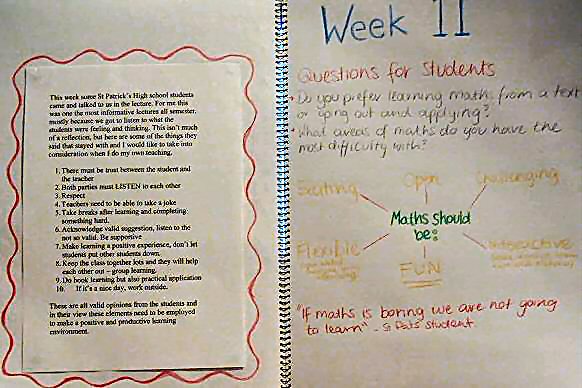 This week some St Patrick's High school students
came and talked to us in the lecture. For me this
was one the most informative lectures all semester,
mostly because we got to listen to what the
students were feeling and thinking. This isn't much
of a reflection, but here are some of the things they
said that stayed with and I would like to take into
consideration when I do my own teaching.
1. There must be trust between the student and
the teacher
2. Both parties must LISTEN to each other
3. Respect
4. Teachers need to be able to take a joke
5. Take breaks after learning and completing
something hard.
6. Acknowledge valid suggestion, listen to the
not so valid. Be supportive
7. Make learning a positive experience, don't let
students put other students down.
8. Keep the class together lots and they will help
each other out - group learning.
9. Do book learning but also practical application
10. If it's a nice day, work outside.
These are all valid opinions from the students and
in their view these elements need to be employed
to make a positive and productive learning
environment.
Week 11
Questions for Students
• Do you prefer learning maths from a text
or going out and applying?
• What areas of maths do you have the
most difficulty with?
Exciting
Open
Challenging
Maths should
be:
Flexible
FUN
"If maths is boring we are not going
to learn" - St Pats student